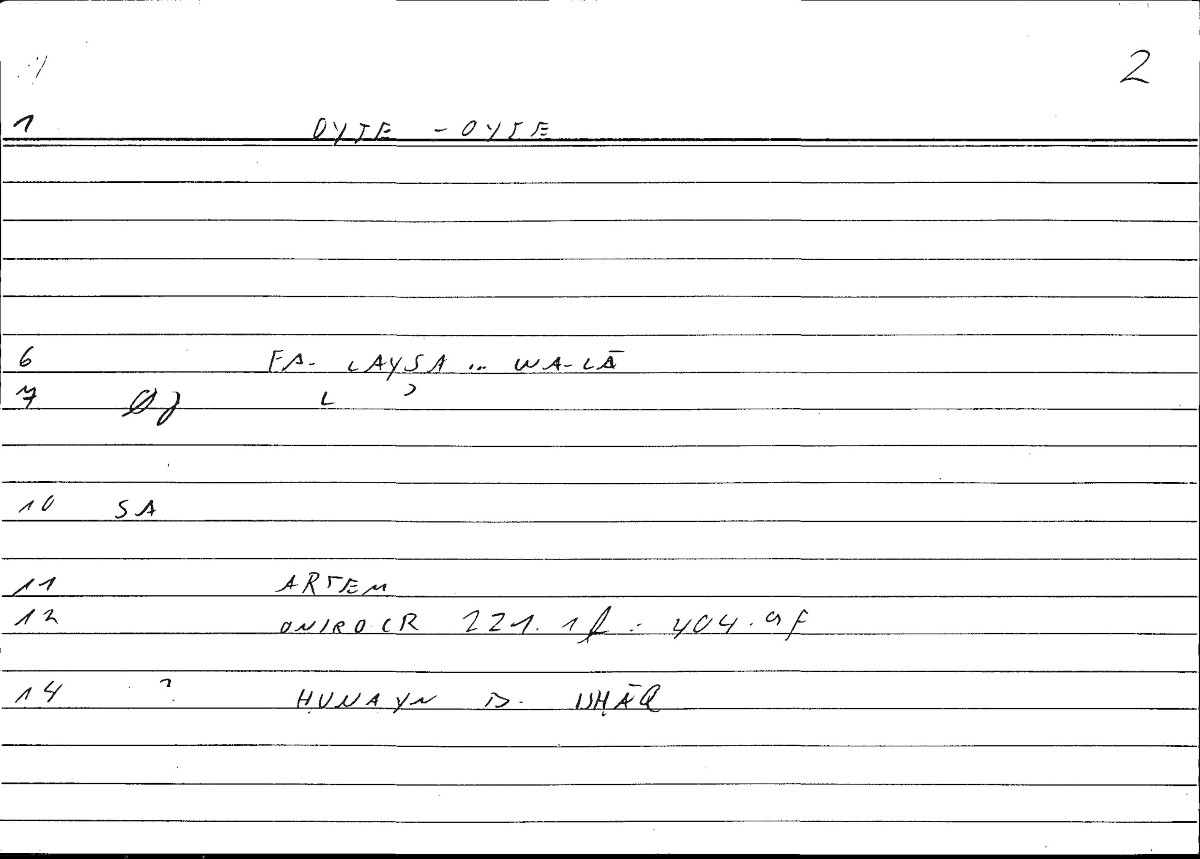 2
1 OYTE - OYTE
6 FA- LAYSA ... WA-LĀ
7 Øj L ʾ
10 SA
11 ARTEM
12 ONIROCR 221.1f = 404.9f
14 ? ḤUNAYN B. ISḤĀQ